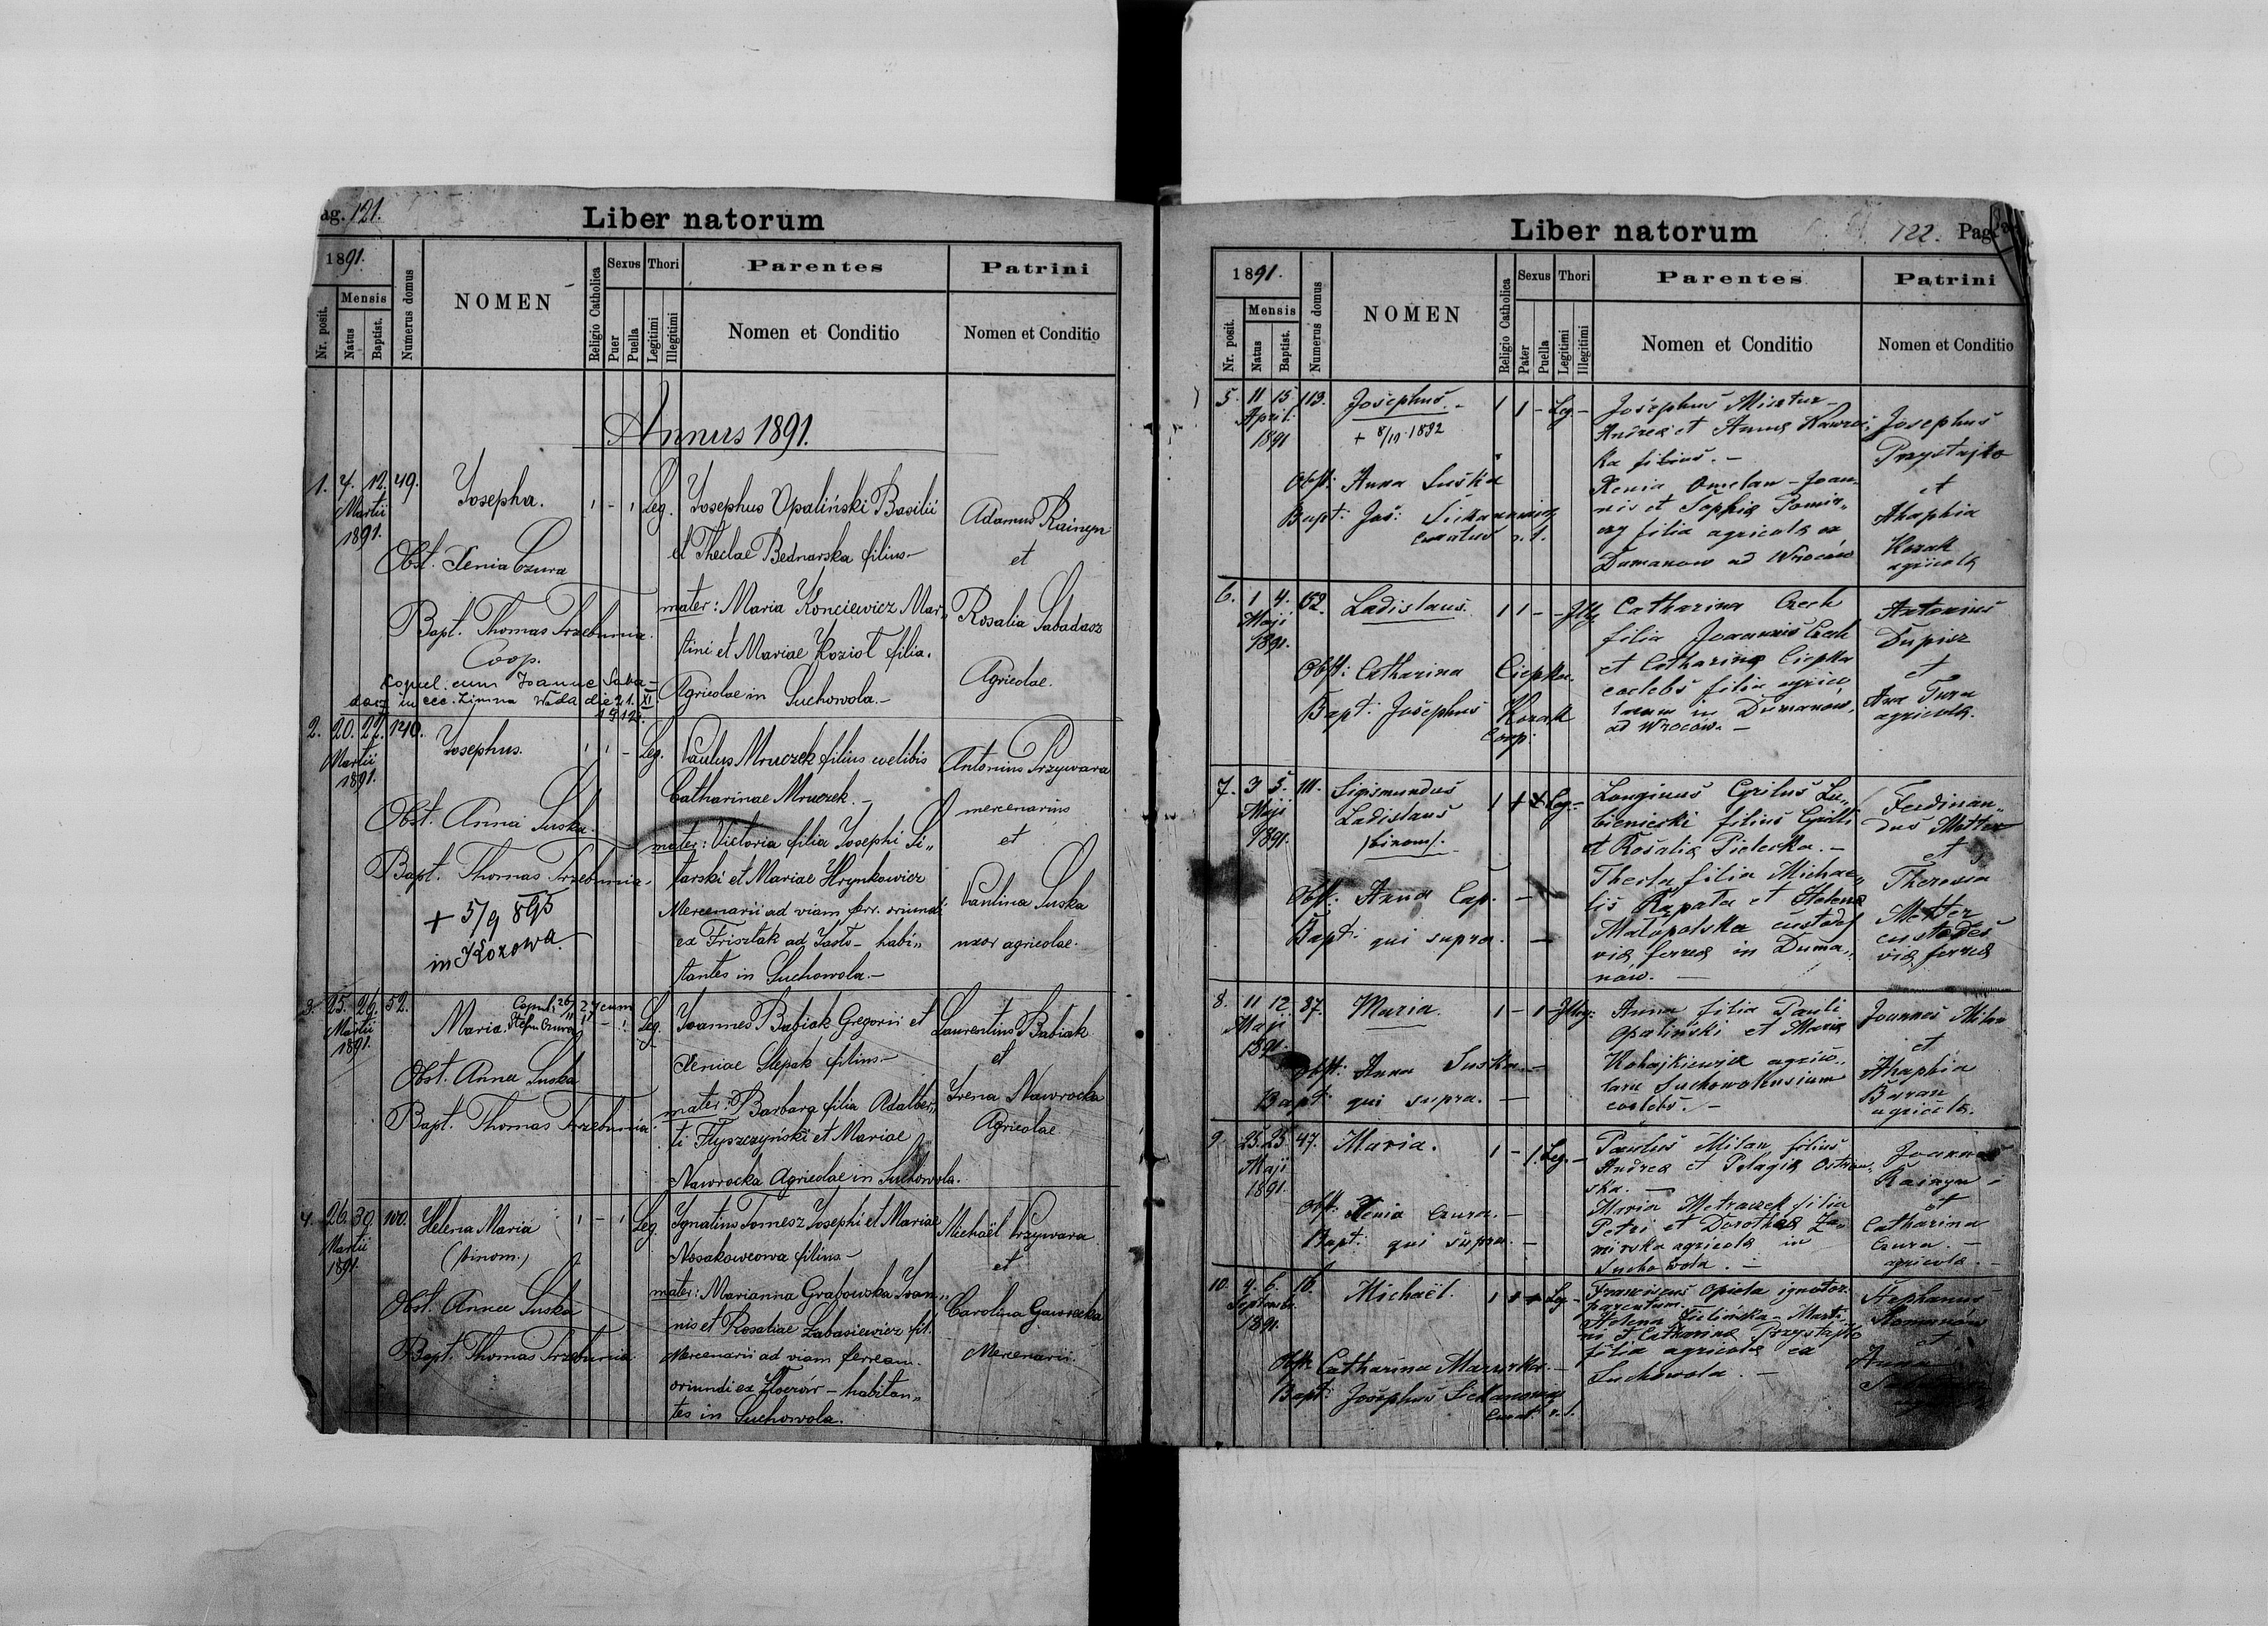 ag. 121.
Liber natorum
1891.
Nr. posit.
Mensis
Natus
Baptist.
Numerus domus
NOMEN
Religio Catholica
Sexus
Puer
Puella
Thori
Legitimi
Illegitimi
Parentes
Nomen et Conditio
Patrini
Nomen et Conditio
Annus 1891.
1. 7. 12. 49.
Martii
1891.
Josepha.
1 - 1 Leg.
Obst. Xenia Czura
Bapt. Thomas Trzebunia.
Coop.
Kopul. cum Joanne Saba-
dasz in ecc. Zimna Woda die 21. XI
1912.
Josephus Opaliński Basilii
et Theclae Bednarska filius-
mater: Maria Konciewicz Mar„
tini et Mariae Kozioł filia.
Agricolae in Suchowola.-
Adamus Rainyn
et
Rosalia Sabadasz
Agricolae.
2. 20. 22. 140.
Martii
1891.
Josephus.
1 1 - Leg.
Obst. Anna Suska.
Bapt. Thomas Trzebunia.
+ 5/9 895
in Kozowa.
Paulus Mruczek filius coelibis
Catharinae Mruczek.-
mater: Victoria filia Josephi Si„
tarski et Mariae Hrynkowicz
Mercenarii ad viam ferr. oriundi
ex Frisztak ad Jasło - habi„
tantes in Suchowola.-
Antonius Przywara
mercenarius
et
Paulina Suska
uxor agricolae.
3. 25. 26. 52.
Martii
1891.
Maria.
1 - 1 Leg.
Obst. Anna Suska
Bapt. Thomas Trzebunia.
Joannes Babiak Gregorii et
Xeniae Slepak filius-
mater: Barbara filia Adalber„
ti Flyszczyński et Mariae
Nawrocka Agricolae in Suchowola.
Laurentius Babiak
et
Irena Nawrocka
Agricolae
4. 26. 30. 100.
Martii
1891.
Helena Maria
(binom.)
1 - 1 Leg.
Obst. Anna Suska
Bapt. Thomas Trzebunia
Ignatius Tomesz Josephi et Mariae
Nosakowcowa filius-
mater: Marianna Grabowska Joan„
nis et Rosaliae Łabasiewicz fil.
Mercenarii ad viam ferream.
oriundi ex Złoczów - habitan„
tes in Suchowola.
Michaël Przywara
et
Carolina Gawrecka
Mercenarii.
Liber natorum
122. Pag.
1891.
Nr. posit.
Mensis
Natus
Baptist.
Numerus domus
NOMEN
Religio Catholica
Sexus
Pater
Puella
Thori
Legitimi
Illegitimi
Parentes
Nomen et Conditio
Patrini
Nomen et Conditio
5. 11 15. 113.
April.
1891
Josephus.-
+ 8/10 1892
1 1 - Leg -
Obst: Anna Suska
Bapt: Jos: Sickanowicz
curatus r. l.
Josephus Misztur-
Andreæ et Annæ Nawroc„
ka filius.-
Xenia Omelan - Joan-
nis et Sophiæ Pomia„
ny filia agricolæ ex
Dumanow ad Wroców
Josephus
Przystajko
et
Ahaphia
Kozak
agricolæ
6. 1 4. 52.
Maji
1891.
Ladislaus.
1 1 - - Illeg
Obst: Catharina Ciepka.
Bapt: Josephus Kozak
Coop:
Catharina Czech
filia Joannis Czech
et Catharinæ Ciepka
coelebs filia agrico
larum in Dumanów,
ad Wroców.-
Antonius
Dupisz
et
Ana Tura
agricolæ.
7. 3 5. 111.
Maji
1891.
Sigismundus
Ladislaus
/binom/.
Leg. -
Obst: Anna Cap. -
Bapt: qui supra. -
Longinus Cyrilus Lu„
bieniecki filius Cyrilli
et Rosaliæ Pielecka.-
Thecla filia Michae„
lis Rapata et Helenæ
Małopolska custodes
viæ ferreæ in Duma„
nów.-
Ferdinan„
dus Metter
et
Theresia
Metter
custodes
viæ ferreæ
8. 11 12. 87.
Maji
1891.
Maria.
1 - 1 - Illeg:
Obst: Anna Suska. -
Bapt: qui supra. -
Anna filia Pauli
Opaliński et Mariæ
Kohajkiewicz agrico„
larum Suchowolensium
coelebs.-
Joannes Milan
et
Ahaphia
Baran
agricolæ.
9. 25. 25. 47.
Maji
1891.
Maria.
1 - 1. Leg. -
Obst: Xenia Czura. -
Bapt: qui supra. -
Paulus Milan filius
Andreæ et Pelagiæ Ostrow„
ska.-
Maria Metraczek filia
Petri et Dorotheæ Za„
mirska agricolæ in
Suchowola.-
Joannes
Rainyn
et
Catharina
Czura.-
agricolæ.-
10. 4. 6. 16.
Septembr.
1891.
Michaël.
Leg -
Obst: Catharina Mazurka. -
Bapt: Josephus Sickanowicz
Curat. r. l.
Franciscus Opiola ignotor.
parentum.
Helena Zielińska - Marti
ni et Catharinæ Przystajko
filia agricolæ ex
Suchowola.-
Stephanus
Romanów
et
Anna